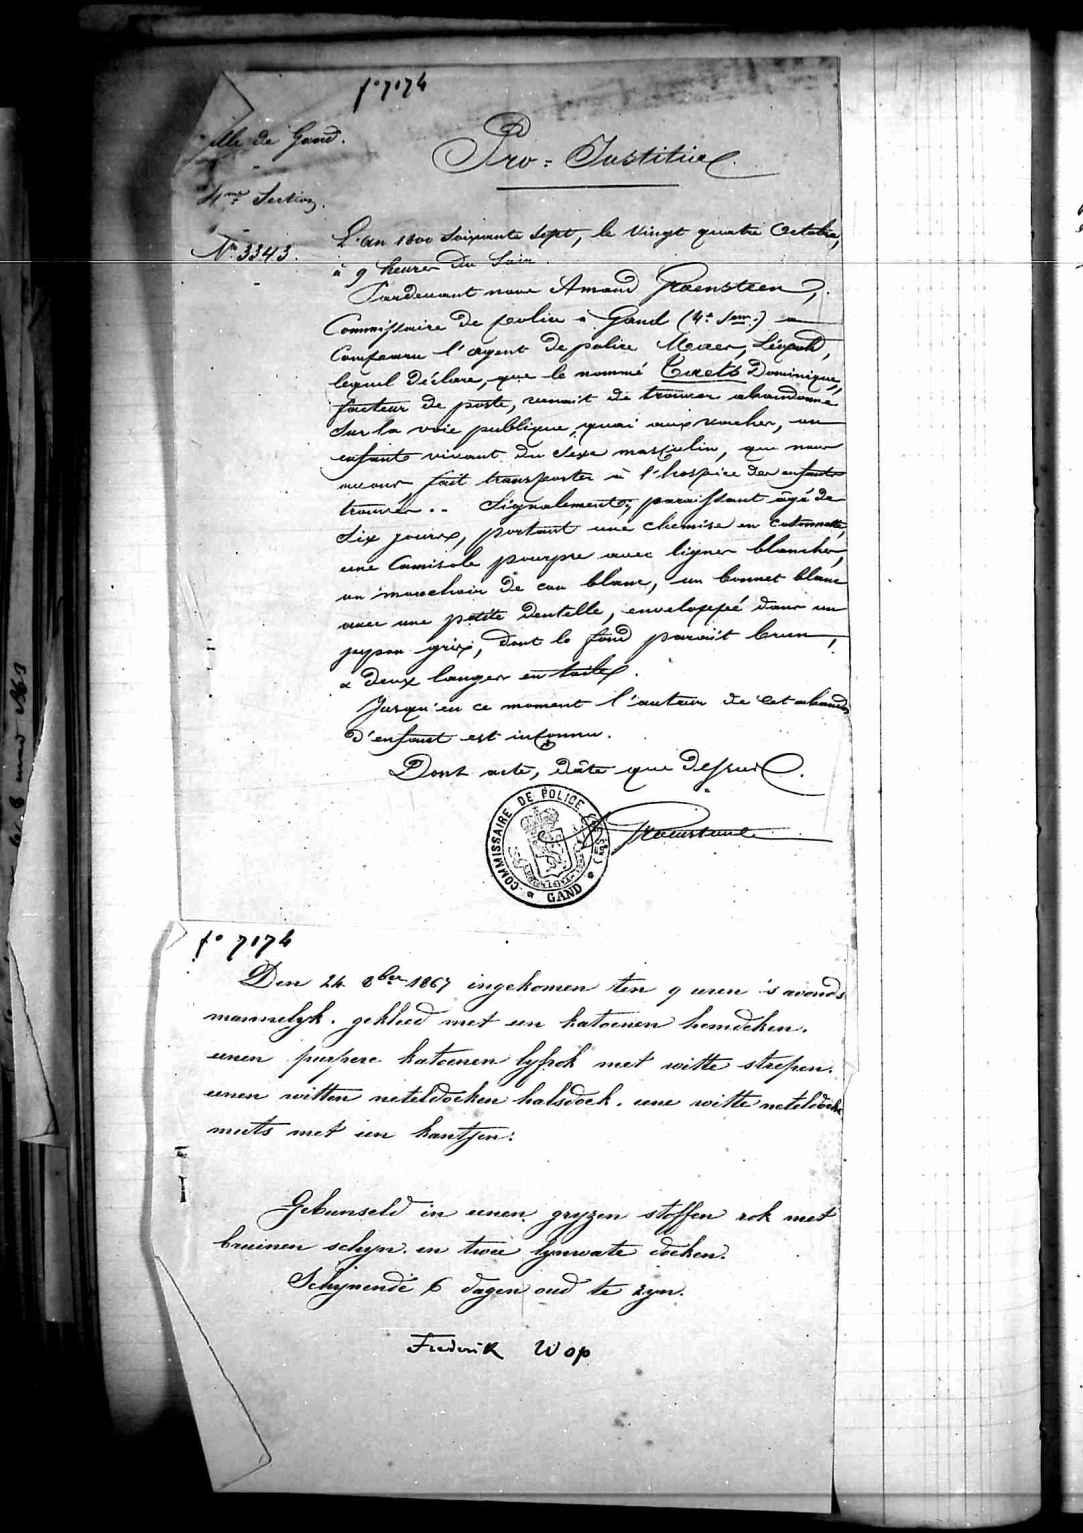 fo 7174
Ville de Gand.
Pro=Justitia.
4me Section.
No 3343.
L'an 1800 soixante sept, le vingt quatre Octobre,
à 9 heures du soir.
Pardevant nous Amand
Commissaire de police à Gand (4e Son:) a
comparu l'agent de police Léopold,
lequel déclare, que le nommé Taets Dominique,
facteur de poste, venait de trouver abandonné
sur la voie publique, quai aux vaches, un
enfant vivant du sèxe masculin, que nous
avons fait transporter à l'hospice des enfants
trouvés.. Signalement; paraissant âgé de
six jours, portant une chemise en cotonnette,
une Camisole pourpre avec lignes blanches,
un mouchoir de cou blanc, un bonnet blanc
avec une petite dentelle, enveloppé dans un
jupon gris, dont le fond parait brun,
& deux langes en toile.
Jusqu'en ce moment l'auteur de cet abandon
d'enfant est inconnu.
Dont acte, date que dessus.
COMMISSAIRE DE POLICE
GAND
fo 7174
Den 24 8ber 1867 ingekomen ten 9 uren 's avonds
mannelyk. gekleed met een katoenen hemdeken.
eenen purpere katoenen lyfrok met witte strepen.
eenen witten neteldoeken halsdoek. eene witte neteldoeke
muts met een kantjen:
Gebunseld in eenen gryzen stoffen rok met
bruinen schyn. en twee lynwate doeken.
Schynende 6 dagen oud te zyn.
Frederik Wop